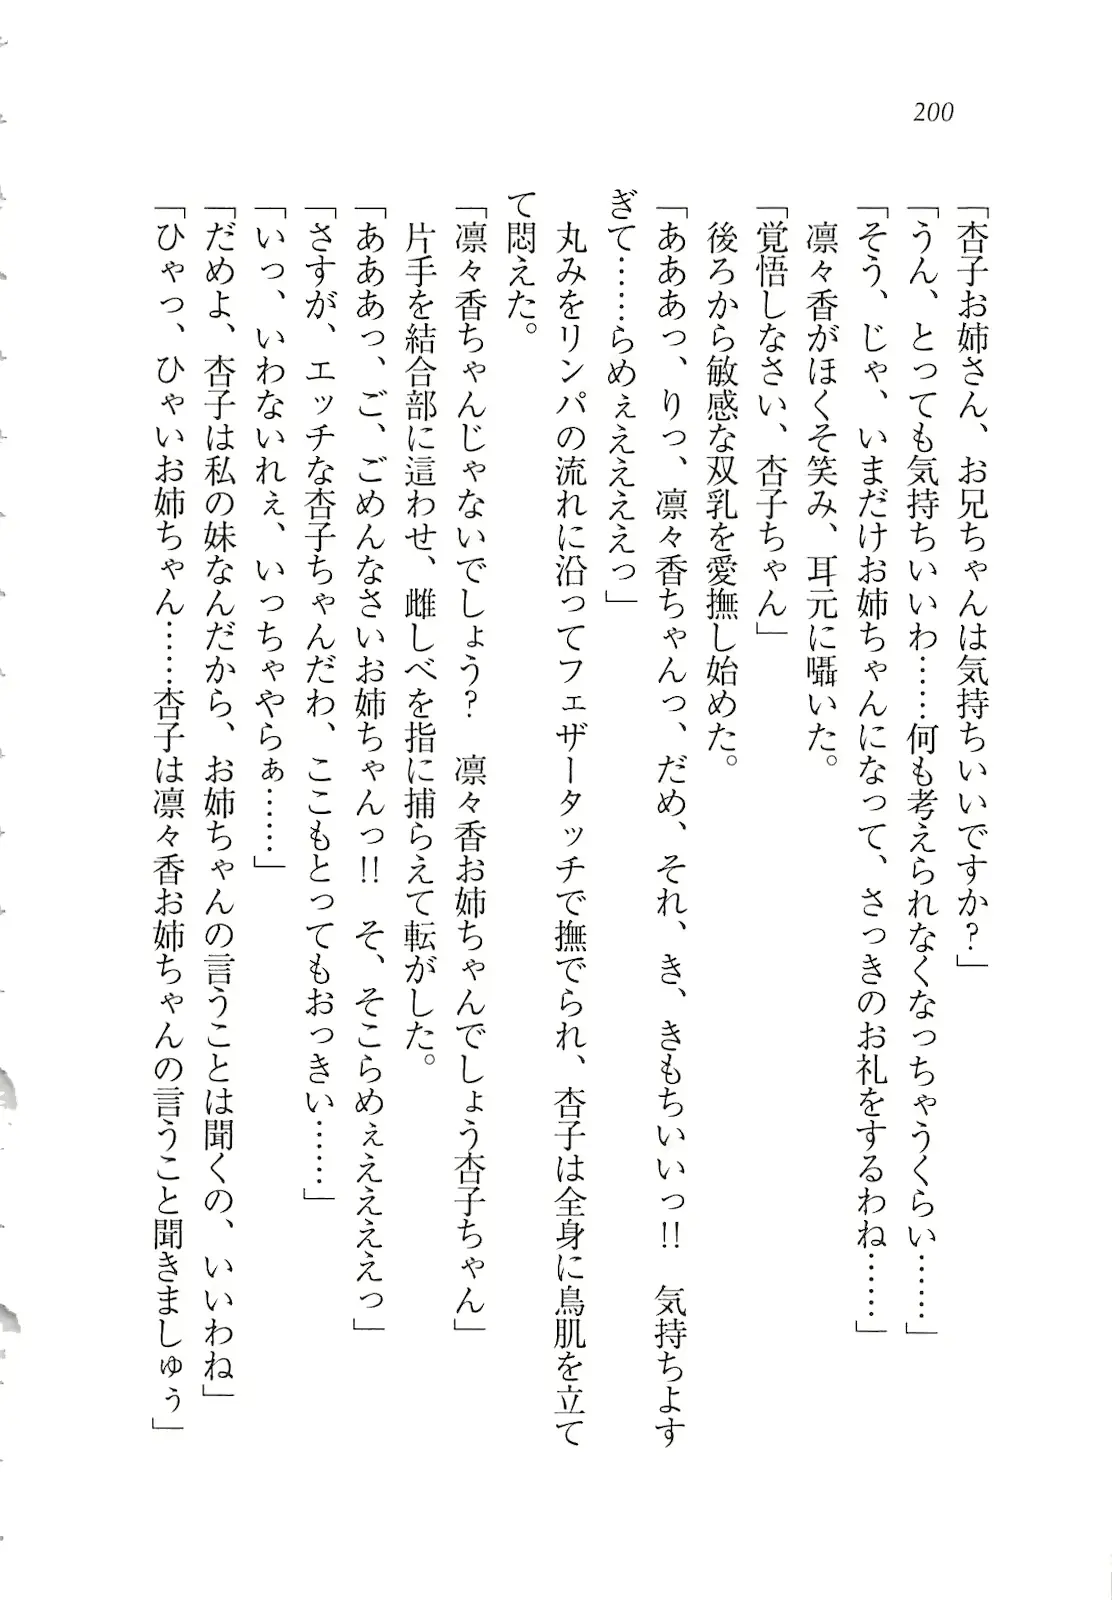 200
「杏子お姉さん、お兄ちゃんは気持ちいいですか？」
「うん、とっても気持ちいいわ……何も考えられなくなっちゃうくらい……」
「そう、じゃ、いまだけお姉ちゃんになって、さっきのお礼をするわね……」
凛々香がほくそ笑み、耳元に囁いた。
「覚悟しなさい、杏子ちゃん」
後ろから敏感な双乳を愛撫し始めた。
「あああっ、りっ、凛々香ちゃんっ、だめ、それ、き、きもちいいっ!!　気持ちよす
ぎて……らめぇえええっ」
丸みをリンパの流れに沿ってフェザータッチで撫でられ、杏子は全身に鳥肌を立て
て悶えた。
「凛々香ちゃんじゃないでしょう？　凛々香お姉ちゃんでしょう杏子ちゃん」
片手を結合部に這わせ、雌しべを指に捕らえて転がした。
「あああっ、ご、ごめんなさいお姉ちゃんっ!!　そ、そこらめぇええええっ」
「さすが、エッチな杏子ちゃんだわ、ここもとってもおっきい……」
「いっ、いわないれぇ、いっちゃやらぁ……」
「だめよ、杏子は私の妹なんだから、お姉ちゃんの言うことは聞くの、いいわね」
「ひゃっ、ひゃいお姉ちゃん……杏子は凛々香お姉ちゃんの言うこと聞きましゅぅ」